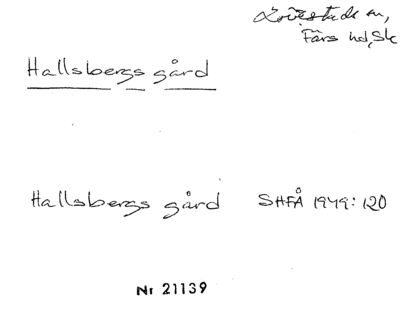 Lövestads sn,
Färs hd, Sk
Hallsbergs gård
Hallsbergs gård SHFÅ 1949: 120
Nr 21139